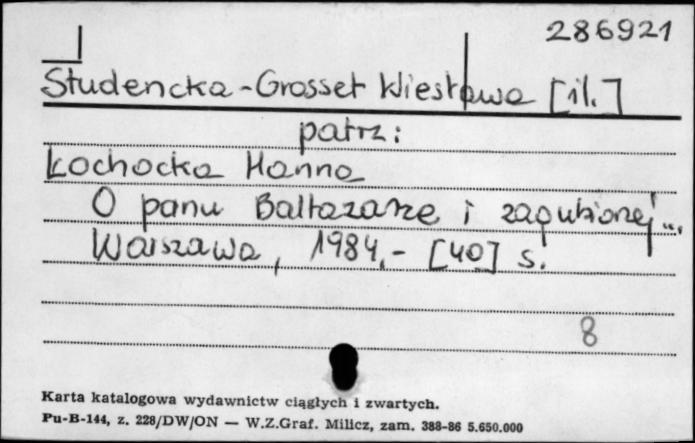 286921
Studencka-Grosset Wiesława [il.]
patrz:
Łochocka Hanna
O panu Baltazarze i zagubionej...
Warszawa, 1984.- [40] s.
8
Karta katalogowa wydawnictw ciągłych i zwartych.
Pu-B-144, z. 228/DW/ON — W.Z.Graf. Milicz, zam. 388-86 5.650.000